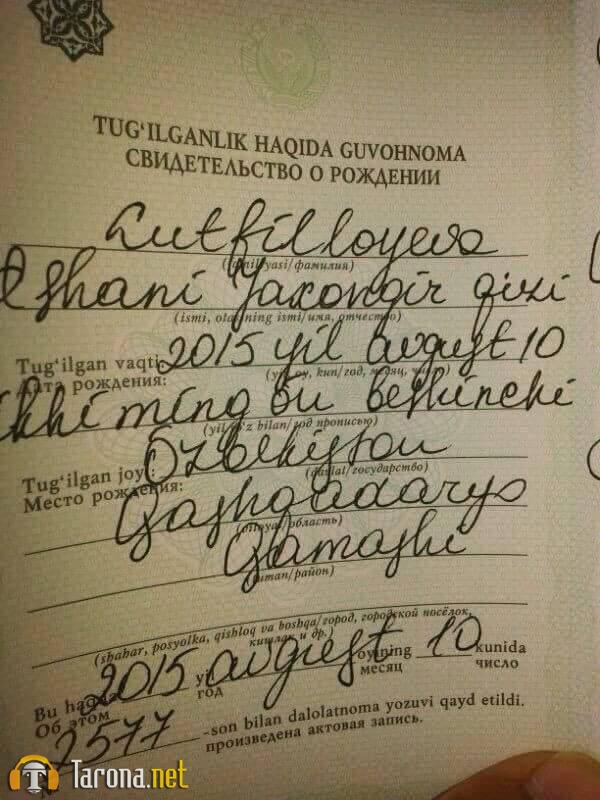 TUG‘ILGANLIK HAQIDA GUVOHNOMA
СВИДЕТЕЛЬСТВО О РОЖДЕНИИ
Lutfilloyeva
(familiyasi/фамилия)
eshani Jaxongir qizi
(ismi, otasining ismi/имя, отчество)
Tug‘ilgan vaqti: 2015 yil avgust 10
Дата рождения: (yil, oy, kun/год, месяц, число)
ikki ming bu beshinchi
(yil so‘z bilan/год прописью)
Tug‘ilgan joyi: Ozbekiston
Место рождения: (davlat/государство)
Qashqadaryo
(viloyat/область)
Qamashi
(tuman/район)
(shahar, posyolka, qishloq va boshqa/город, городской посёлок,
кишлак и др.)
Bu haqda 2015 yil avgust oyining 10 kunida
Об этом год месяц число
2577 -son bilan dalolatnoma yozuvi qayd etildi.
произведена актовая запись.
Tarona.net